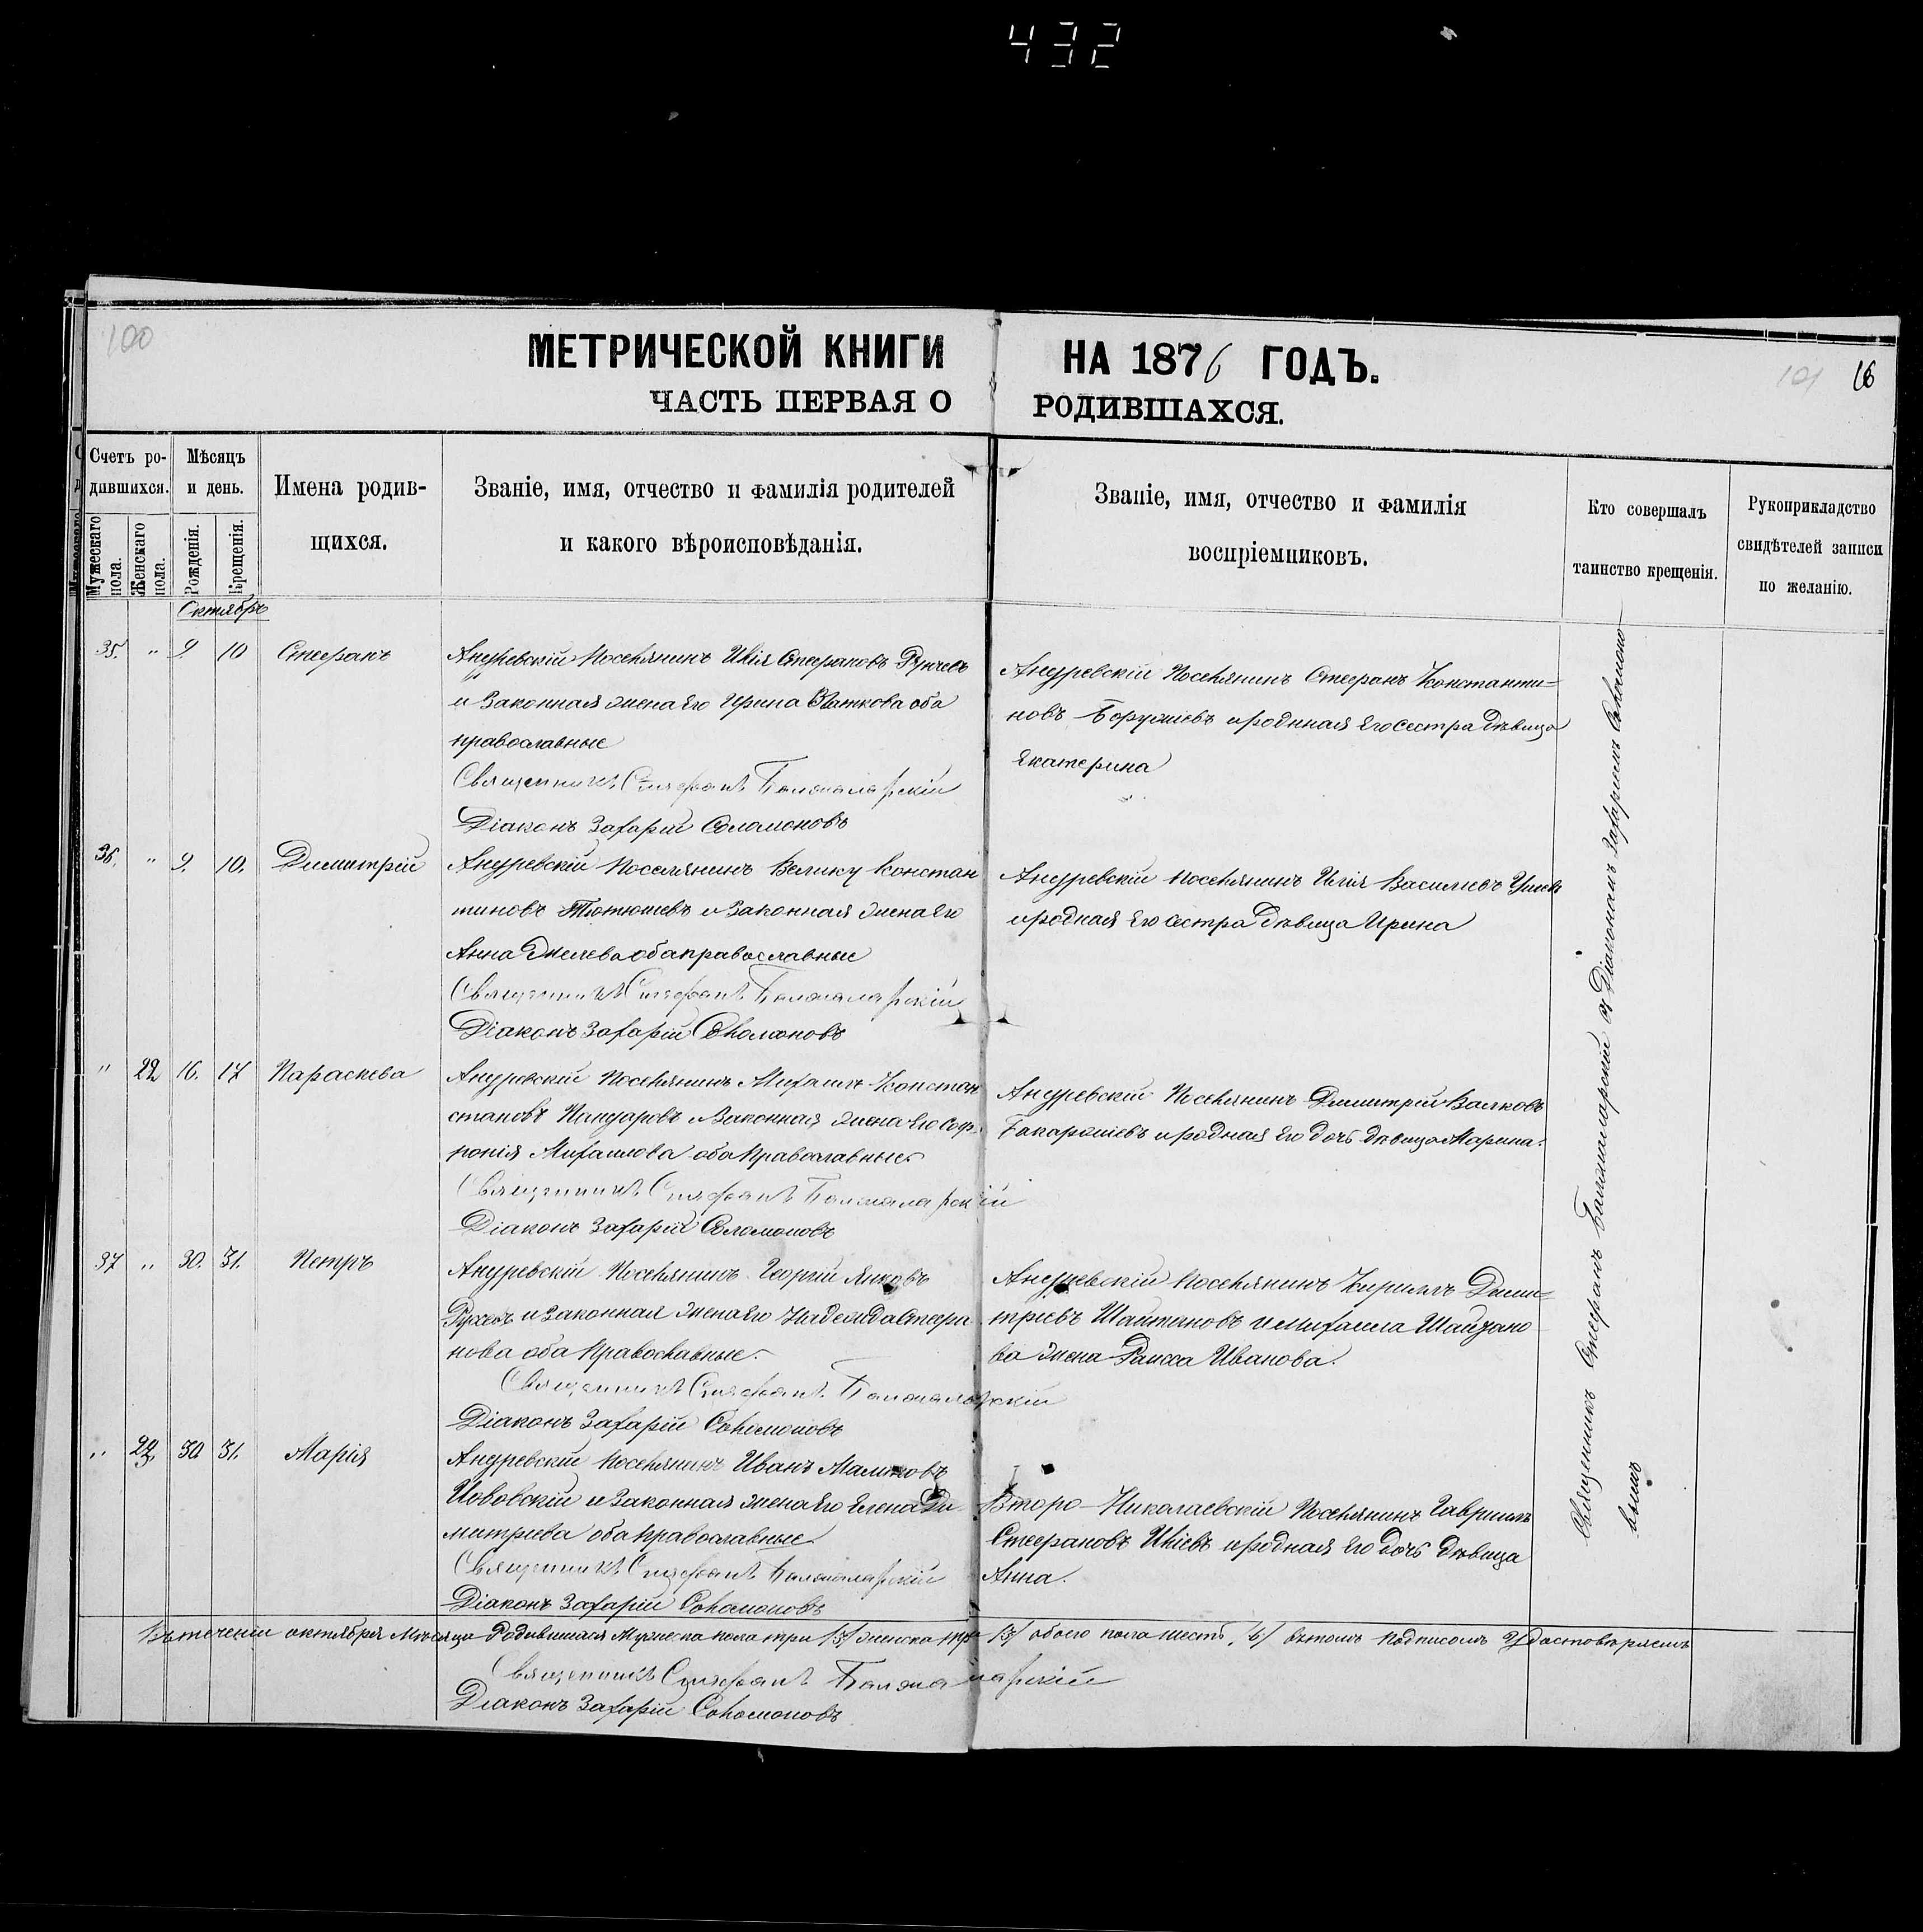 432
100
МЕТРИЧЕСКОЙ КНИГИ НА 1876 ГОДЪ.
ЧАСТЬ ПЕРВАЯ О РОДИВШАХСЯ.
101 16
Счетъ ро-
дившихся.
Мужескаго пола.
Женскаго пола.
Мѣсяцъ
и день.
Рожденія.
Крещенія.
Имена родив-
шихся.
Званіе, имя, отчество и фамилія родителей
и какого вѣроисповѣданія.
Званіе, имя, отчество и фамилія
воспріемниковъ.
Кто совершалъ
таинство крещенія.
Рукоприкладство
свидѣтелей записи
по желанію.
Октябрь
35. " 9. 10 Стефанъ
Анурeвскій Поселянинъ Илія Стефановъ
и Законная жена Его Ирина Златкова оба
православные
Священникъ Стефанъ
Діаконъ Захарій Соломоновъ
Анурeвскій Поселянинъ Стефанъ Константи=
новъ и родная Его сестра дѣвица
Екатерина
36. " 9. 10. Димитрій
Анурeвскій Поселянинъ Велику Констан
тиновъ Тютюшевъ и Законная жена Его
Анна Желева оба православные
Священникъ Стефанъ
Діаконъ Захарій Соломоновъ
Анурeвскій Поселянинъ Илія Василіевъ
и родная Его сестра дѣвица Ирина
" 22 16. 17 Параскева
Анурeвскій Поселянинъ Михаилъ Констан
и Законная жена Его Соф
ронія Михаилова оба Православные
Священникъ Стефанъ
Діаконъ Захарій Соломоновъ
Анурeвскій Поселянинъ Димитрій Валковъ
и родная Его дочь дѣвица Марина.
37 " 30. 31. Петръ
Анурeвскій Поселянинъ Георгій Янковъ
и Законная жена Его Надежда Стефа
нова оба Православные.
Священникъ Стефанъ
Діаконъ Захарій Соломоновъ
Анурeвскій Поселянинъ Кирилъ Дими=
тріевъ Шайтановъ и Михаила Шайтано
ва жена Раисса Иванова.
" 23. 30 31. Марія
Анурeвскій Поселянинъ Иванъ
Іововскій и Законная жена Его Елена Ди
митріева оба православные
Священникъ Стефанъ
Діаконъ Захарій Соломоновъ
Второ-Николаевскій Поселянинъ Гавріилъ
Стефановъ Иліевъ и родная Его дочь дѣвица
Анна.
Священникъ Стефанъ съ Діакономъ Захаріемъ Соломоно
вымъ
Въ теченіи октября Мѣсяца Родившихся Мужеска пола три /3/ женска три /3/ обоего пола шесть, /6/ въ томъ подписомъ Удостовѣряемъ
Священникъ Стефанъ
Діаконъ Захарій Соломоновъ